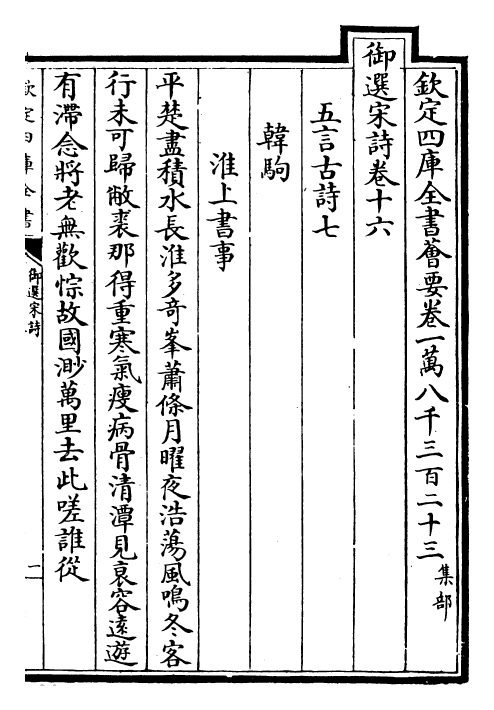 欽定四庫全書薈要卷一萬八千三百二十三集部
御選宋詩卷十六
五言古詩七
韓駒
淮上書事
平楚盡積水長淮多奇峯蕭條月曜夜浩蕩風鳴冬客
行未可歸敝裘那得重寒氣瘦病骨清潭見衰容遠遊
有滯念將老無歡悰故國渺萬里去此嗟誰從
欽定四庫全書
御選宋詩